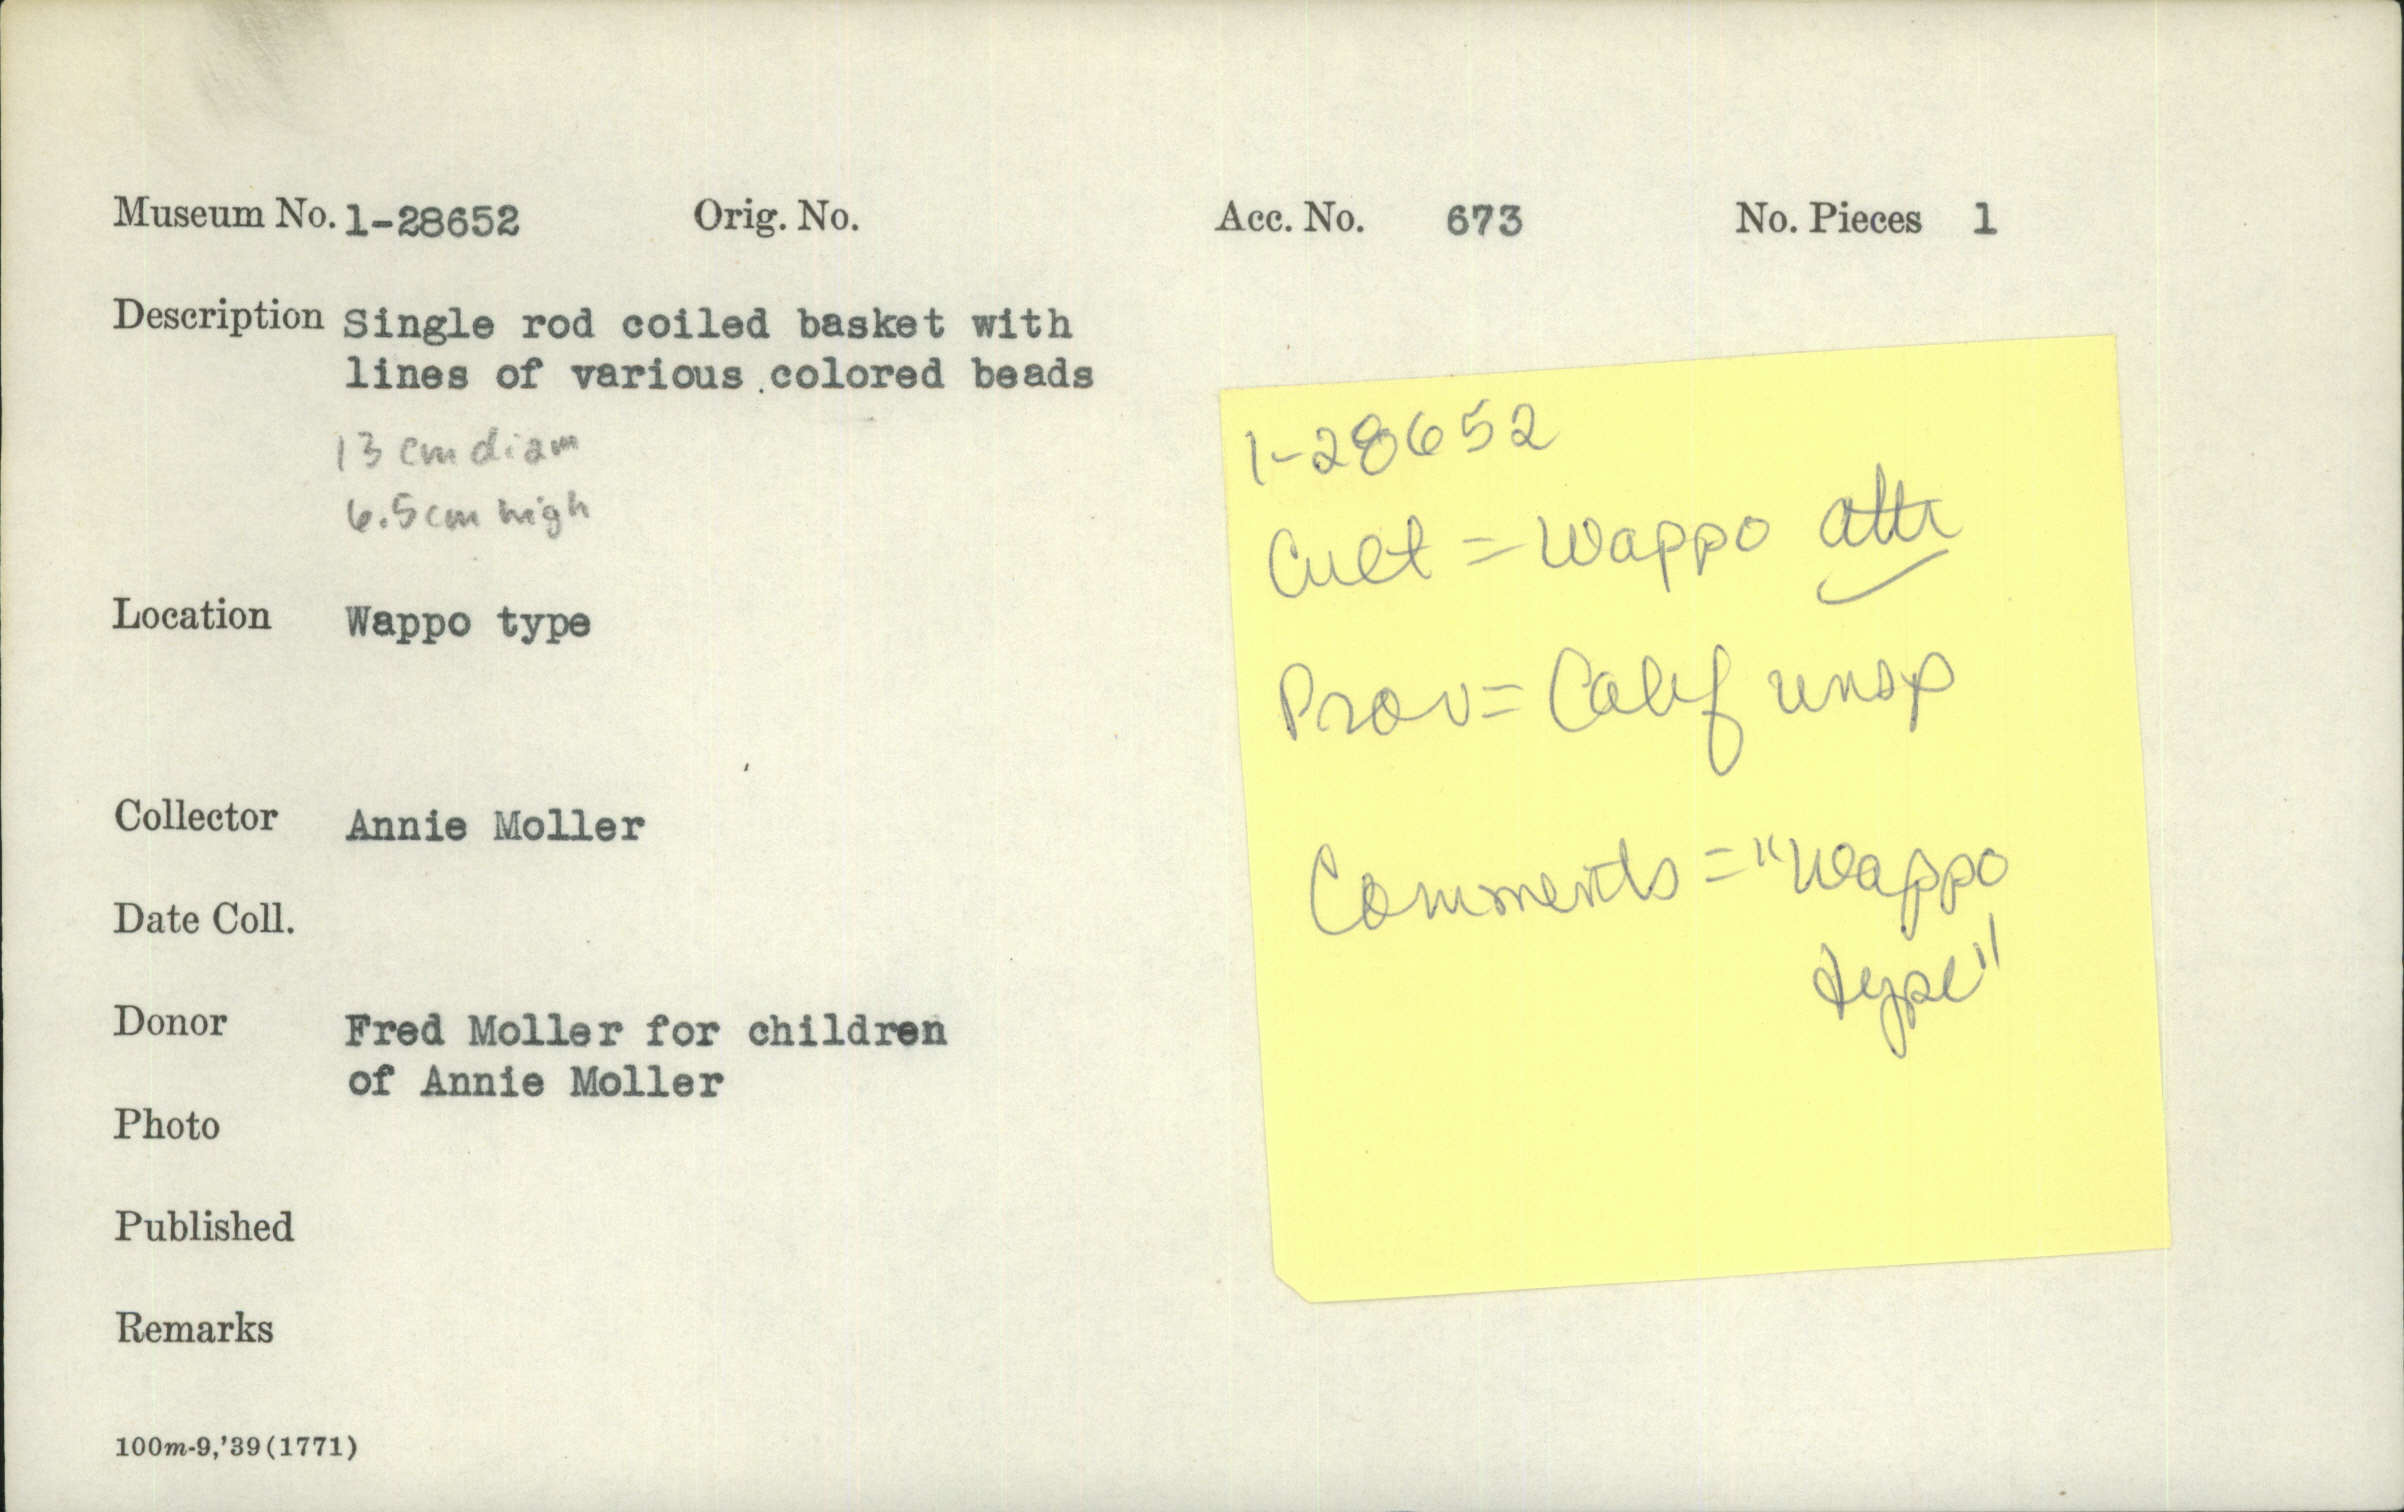 Museum No. 1-28652 Orig. No. Acc. No. 673 No. Pieces 1
Description Single rod coiled basket with
lines of various colored beads
13 cm diam
6.5 cm high
Location Wappo type
Collector Annie Moller
Date Coll.
Donor Fred Moller for children
of Annie Moller
Photo
Published
Remarks
100m-9,'39(1771)
1-28652
Cult = Wappo attr
Prov = Calif unsp
Comments = "Wappo
type"